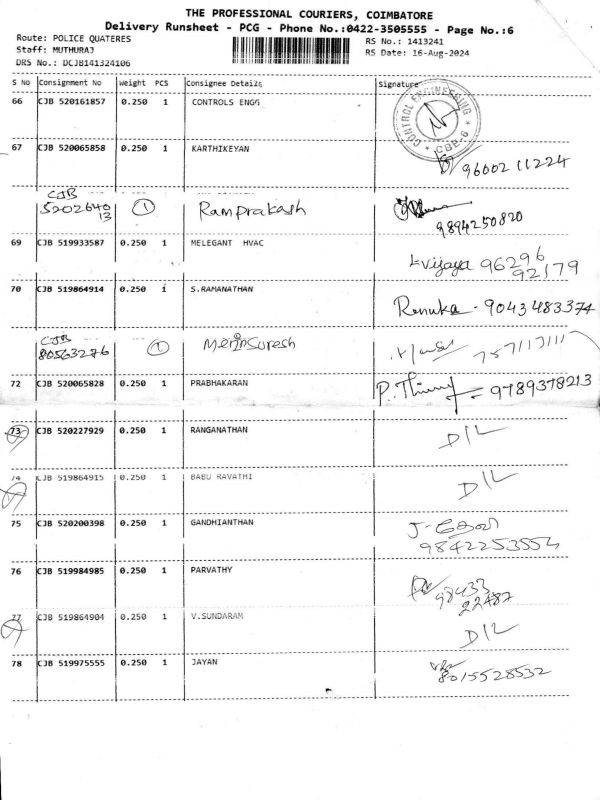 THE PROFESSIONAL COURIERS, COIMBATORE
Delivery Runsheet - PCG - Phone No.:0422-3505555 - Page No.:6
Route: POLICE QUATERES
RS No.: 1413241
Staff: MUTHURAJ
RS Date: 16-Aug-2024
DRS No.: DCJB141324106
S No Consignment No Weight PCS Consignee Details Signature
66 CJB 520161857 0.250 1 CONTROLS ENGG
CONTROL ENGINEERING
CBE-6
67 CJB 520065858 0.250 1 KARTHIKEYAN
9600211224
CJB
5202640
13
1 Ramprakash
9894250820
69 CJB 519933587 0.250 1 MELEGANT HVAC
Vijaya 96296
92179
70 CJB 519864914 0.250 1 S.RAMANATHAN
Renuka - 9043483374
CJB
80563276 1 MerinSuresh
72 CJB 520065828 0.250 1 PRABHAKARAN
9789378213
73 CJB 520227929 0.250 1 RANGANATHAN
D/L
74 CJB 519864915 0.250 1 BABU RAVATHI
D/L
75 CJB 520200398 0.250 1 GANDHIANTHAN
9842253554
76 CJB 519984985 0.250 1 PARVATHY
98433
22487
77 CJB 519864904 0.250 1 V.SUNDARAM
D/L
78 CJB 519975555 0.250 1 JAYAN
8015528532